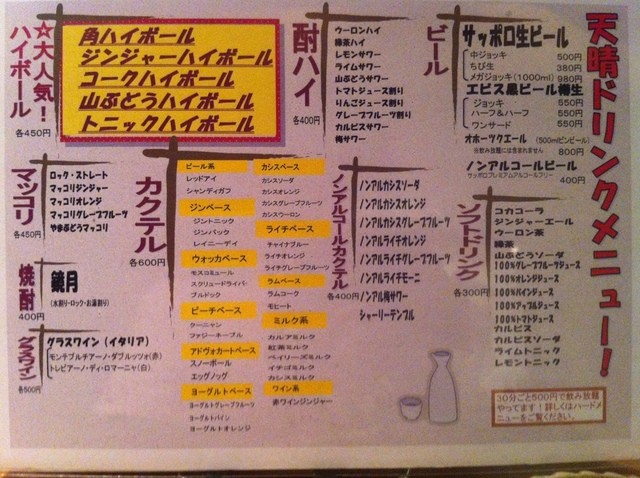 天晴ドリンクメニュー！
☆大人気！
ハイボール
各450円
角ハイボール
ジンジャーハイボール
コークハイボール
山ぶどうハイボール
トニックハイボール
酎ハイ
各400円
ウーロンハイ
緑茶ハイ
レモンサワー
ライムサワー
山ぶどうサワー
トマトジュース割り
りんごジュース割り
グレープフルーツ割り
カルピスサワー
梅サワー
ビール
サッポロ生ビール
中ジョッキ 500円
ちび生 380円
メガジョッキ(1000ml) 980円
エビス黒ビール樽生
ジョッキ 550円
ハーフ&ハーフ 550円
ワンサード 550円
オホーツクエール (500mlビンビール)
※飲み放題には含まれません 800円
ノンアルコールビール
サッポロプレミアムアルコールフリー 400円
マッコリ
各450円
ロック・ストレート
マッコリジンジャー
マッコリオレンジ
マッコリグレープフルーツ
やまぶどうマッコリ
焼酎
400円
鏡月
(水割り・ロック・お湯割り)
グラスワイン
各500円
グラスワイン (イタリア)
モンテプルチアーノ・ダブルッツォ(赤)
トレビアーノ・ディ・ロマーニャ(白)
カクテル
各600円
ビール系
レッドアイ
シャンディガフ
ジンベース
ジントニック
ジンバック
レイニーデイ
ウォッカベース
モスコミュール
スクリュードライバー
ブルドック
ピーチベース
クーニャン
ファジーネーブル
アドヴォカートベース
スノーボール
エッグノッグ
ヨーグルトベース
ヨーグルトグレープフルーツ
ヨーグルトパイン
ヨーグルトオレンジ
カシスベース
カシスソーダ
カシスオレンジ
カシスグレープフルーツ
カシスウーロン
ライチベース
チャイナブルー
ライチオレンジ
ライチグレープフルーツ
ラムベース
ラムコーク
モヒート
ミルク系
カルアミルク
紅茶ミルク
ベイリーズミルク
イチゴミルク
カシスミルク
ワイン系
赤ワインジンジャー
ノンアルコールカクテル
各400円
ノンアルカシスソーダ
ノンアルカシスオレンジ
ノンアルカシスグレープフルーツ
ノンアルライチオレンジ
ノンアルライチグレープフルーツ
ノンアルライチモーニ
ノンアル梅サワー
シャーリーテンプル
ソフトドリンク
各300円
コカコーラ
ジンジャーエール
ウーロン茶
緑茶
山ぶどうソーダ
100%グレープフルーツジュース
100%オレンジジュース
100%パインジュース
100%アップルジュース
100%トマトジュース
カルピス
カルピスソーダ
ライムトニック
レモントニック
30分ごと500円で飲み放題
やってます！詳しくはハードメ
ニューをご覧ください。